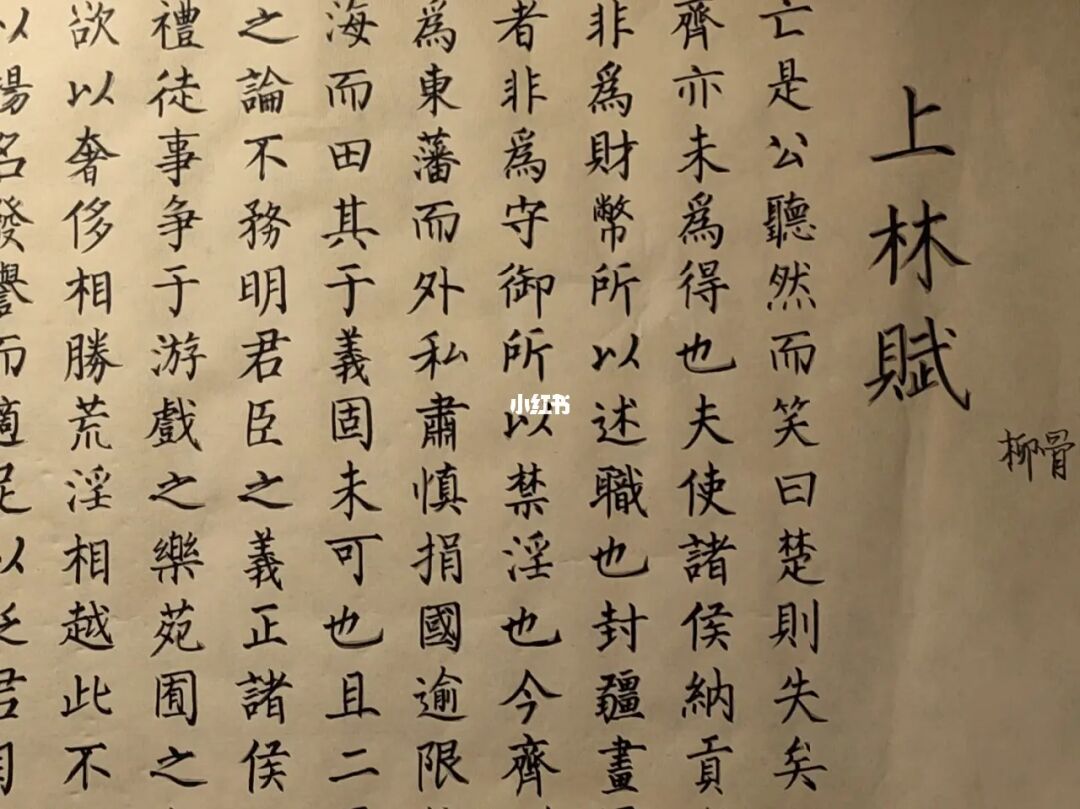 柳骨
上林賦
亡是公聽然而笑曰楚則失矣
齊亦未為得也夫使諸侯納貢
非為財幣所以述職也封疆畫
者非為守御所以禁淫也今齊
為東藩而外私肅慎捐國逾限
海而田其于義固未可也且二
之論不務明君臣之義正諸侯
禮徒事争于游戲之樂苑囿之
欲以奢侈相勝荒淫相越此不
以揚名發譽而適足以貶君自
小红书